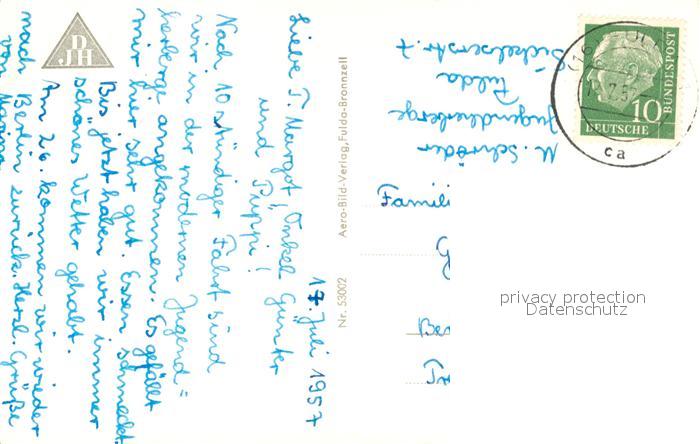 17. Juli 1957
Liebe T. Margot, Onkel Günter
und Puppi!
Nach 10 stündiger Fahrt sind
wir in der modernen Jugend=
herberge angekommen. Es gefällt
mir hier sehr gut. Essen schmeckt.
Bis jetzt haben wir immer
schönes Wetter gehabt.
Am 26. kommen wir wieder
nach Berlin zurück. Herzl. Grüße
von
DJH
Nr. 53002
Aero-Bild-Verlag, Fulda-Bronnzell
M. Schröder
Jugendherberge
Fulda
Famili
G
Ber
DEUTSCHE
BUNDESPOST
10
ca
privacy protection
Datenschutz